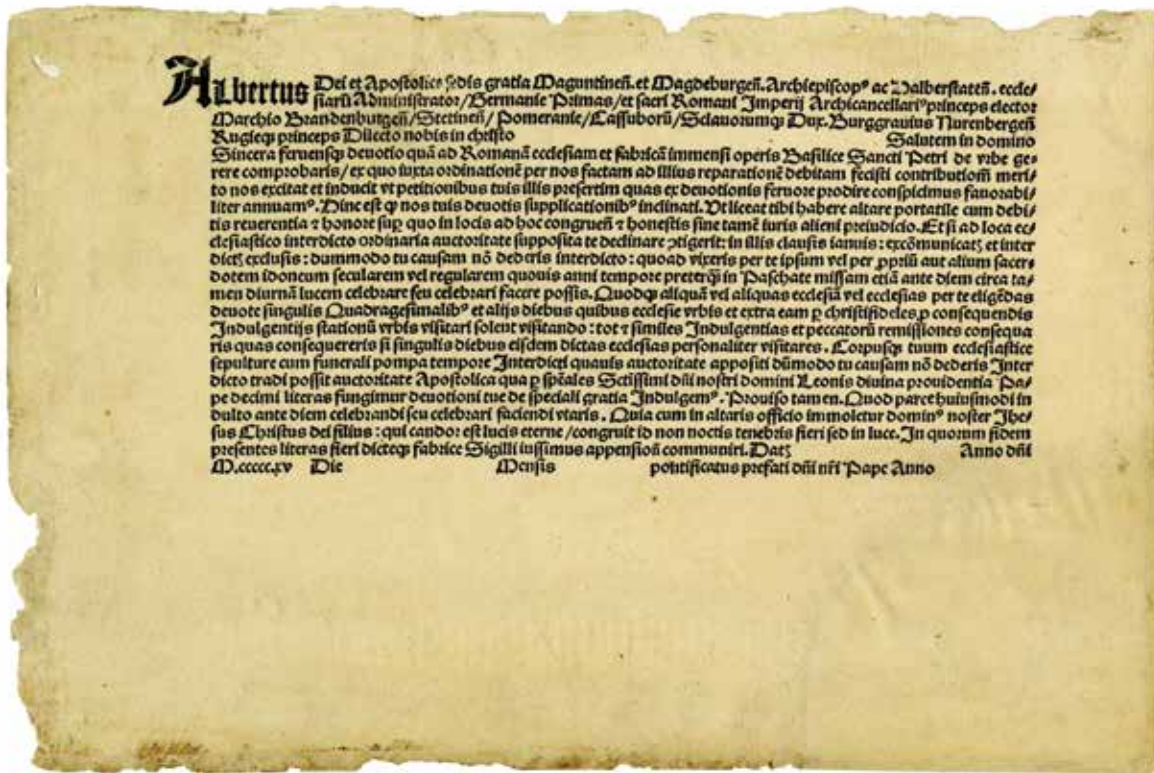 ALbertus Dei et Apostolice sedis gratia Maguntineñ. et Magdeburgeñ. Archiepiscopꝰ ac Halberstateñ. eccle⸗
siarũ Administrator/Germanie Primas/et sacri Romani Imperij Archicancellariꝰ princeps elector
Marchio Brandenburgeñ/Stetineñ/Pomeranie/Cassuborũ/Sclauorumqꝫ Dux. Burggrauius Nurenbergeñ
Rugieqꝫ princeps Dilecto nobis in christo Salutem in domino
Sincera feruensqꝫ deuotio quã ad Romanã ecclesiam et fabricã immensi operis Basilice Sancti Petri de vrbe ge⸗
rere comprobaris/ex quo iuxta ordinationẽ per nos factam ad illius reparationẽ debitam fecisti contributionẽ meri⸗
to nos excitat et inducit vt petitionibus tuis illis presertim quas ex deuotionis feruore prodire conspicimus fauorabi⸗
liter annuamꝰ. Hinc est qꝫ nos tuis deuotis supplicationibꝰ inclinati. Vt liceat tibi habere altare portatile cum debi⸗
tis reuerentia ⁊ honore suꝑ quo in locis ad hoc congrueñ ⁊ honestis sine tamẽ iuris alieni preiudicio. Et si ad loca ec⸗
clesiastico interdicto ordinaria auctoritate supposita te declinare ꝯtigerit: in illis clausis ianuis: excõmunicatꝫ et inter
dictꝫ exclusis: dummodo tu causam nõ dederis interdicto: quoad vixeris per te ipsum vel per ꝓpriũ aut alium sacer⸗
dotem idoneum secularem vel regularem quouis anni tempore preterqꝫ in Paschate missam etiã ante diem circa ta⸗
men diurnã lucem celebrare seu celebrari facere possis. Quodqꝫ aliquã vel aliquas ecclesiã vel ecclesias per te eligẽdas
deuote singulis Quadragesimalibꝰ et alijs diebus quibus ecclesie vrbis et extra eam ꝑ christifideles ꝓ consequendis
Indulgentijs stationũ vrbis visitari solent visitando: tot ⁊ similes Indulgentias et peccatorũ remissiones consequa
ris quas consequereris si singulis diebus eisdem dictas ecclesias personaliter visitares. Corpusqꝫ tuum ecclesiastice
sepulture cum funerali pompa tempore Interdicti quauis auctoritate appositi dũmodo tu causam nõ dederis Inter
dicto tradi possit auctoritate Apostolica qua ꝑ spẽales Sctissimi dñi nostri domini Leonis diuina prouidentia Pa⸗
pe decimi literas fungimur deuotioni tue de speciali gratia Indulgemꝰ. Prouiso tamen. Quod parce huiusmodi in
dulto ante diem celebrandi seu celebrari faciendi vtaris. Quia cum in altaris officio immoletur dominꝰ noster Jhe⸗
sus Christus dei filius: qui candor est lucis eterne/congruit id non noctis tenebris fieri sed in luce. In quorum fidem
presentes literas fieri dicteqꝫ fabrice Sigilli iussimus appensioñ communiri. Datꝫ Anno dñi
M.ccccc.xv Die Mensis pontificatus prefati dñi nr̃i Pape Anno